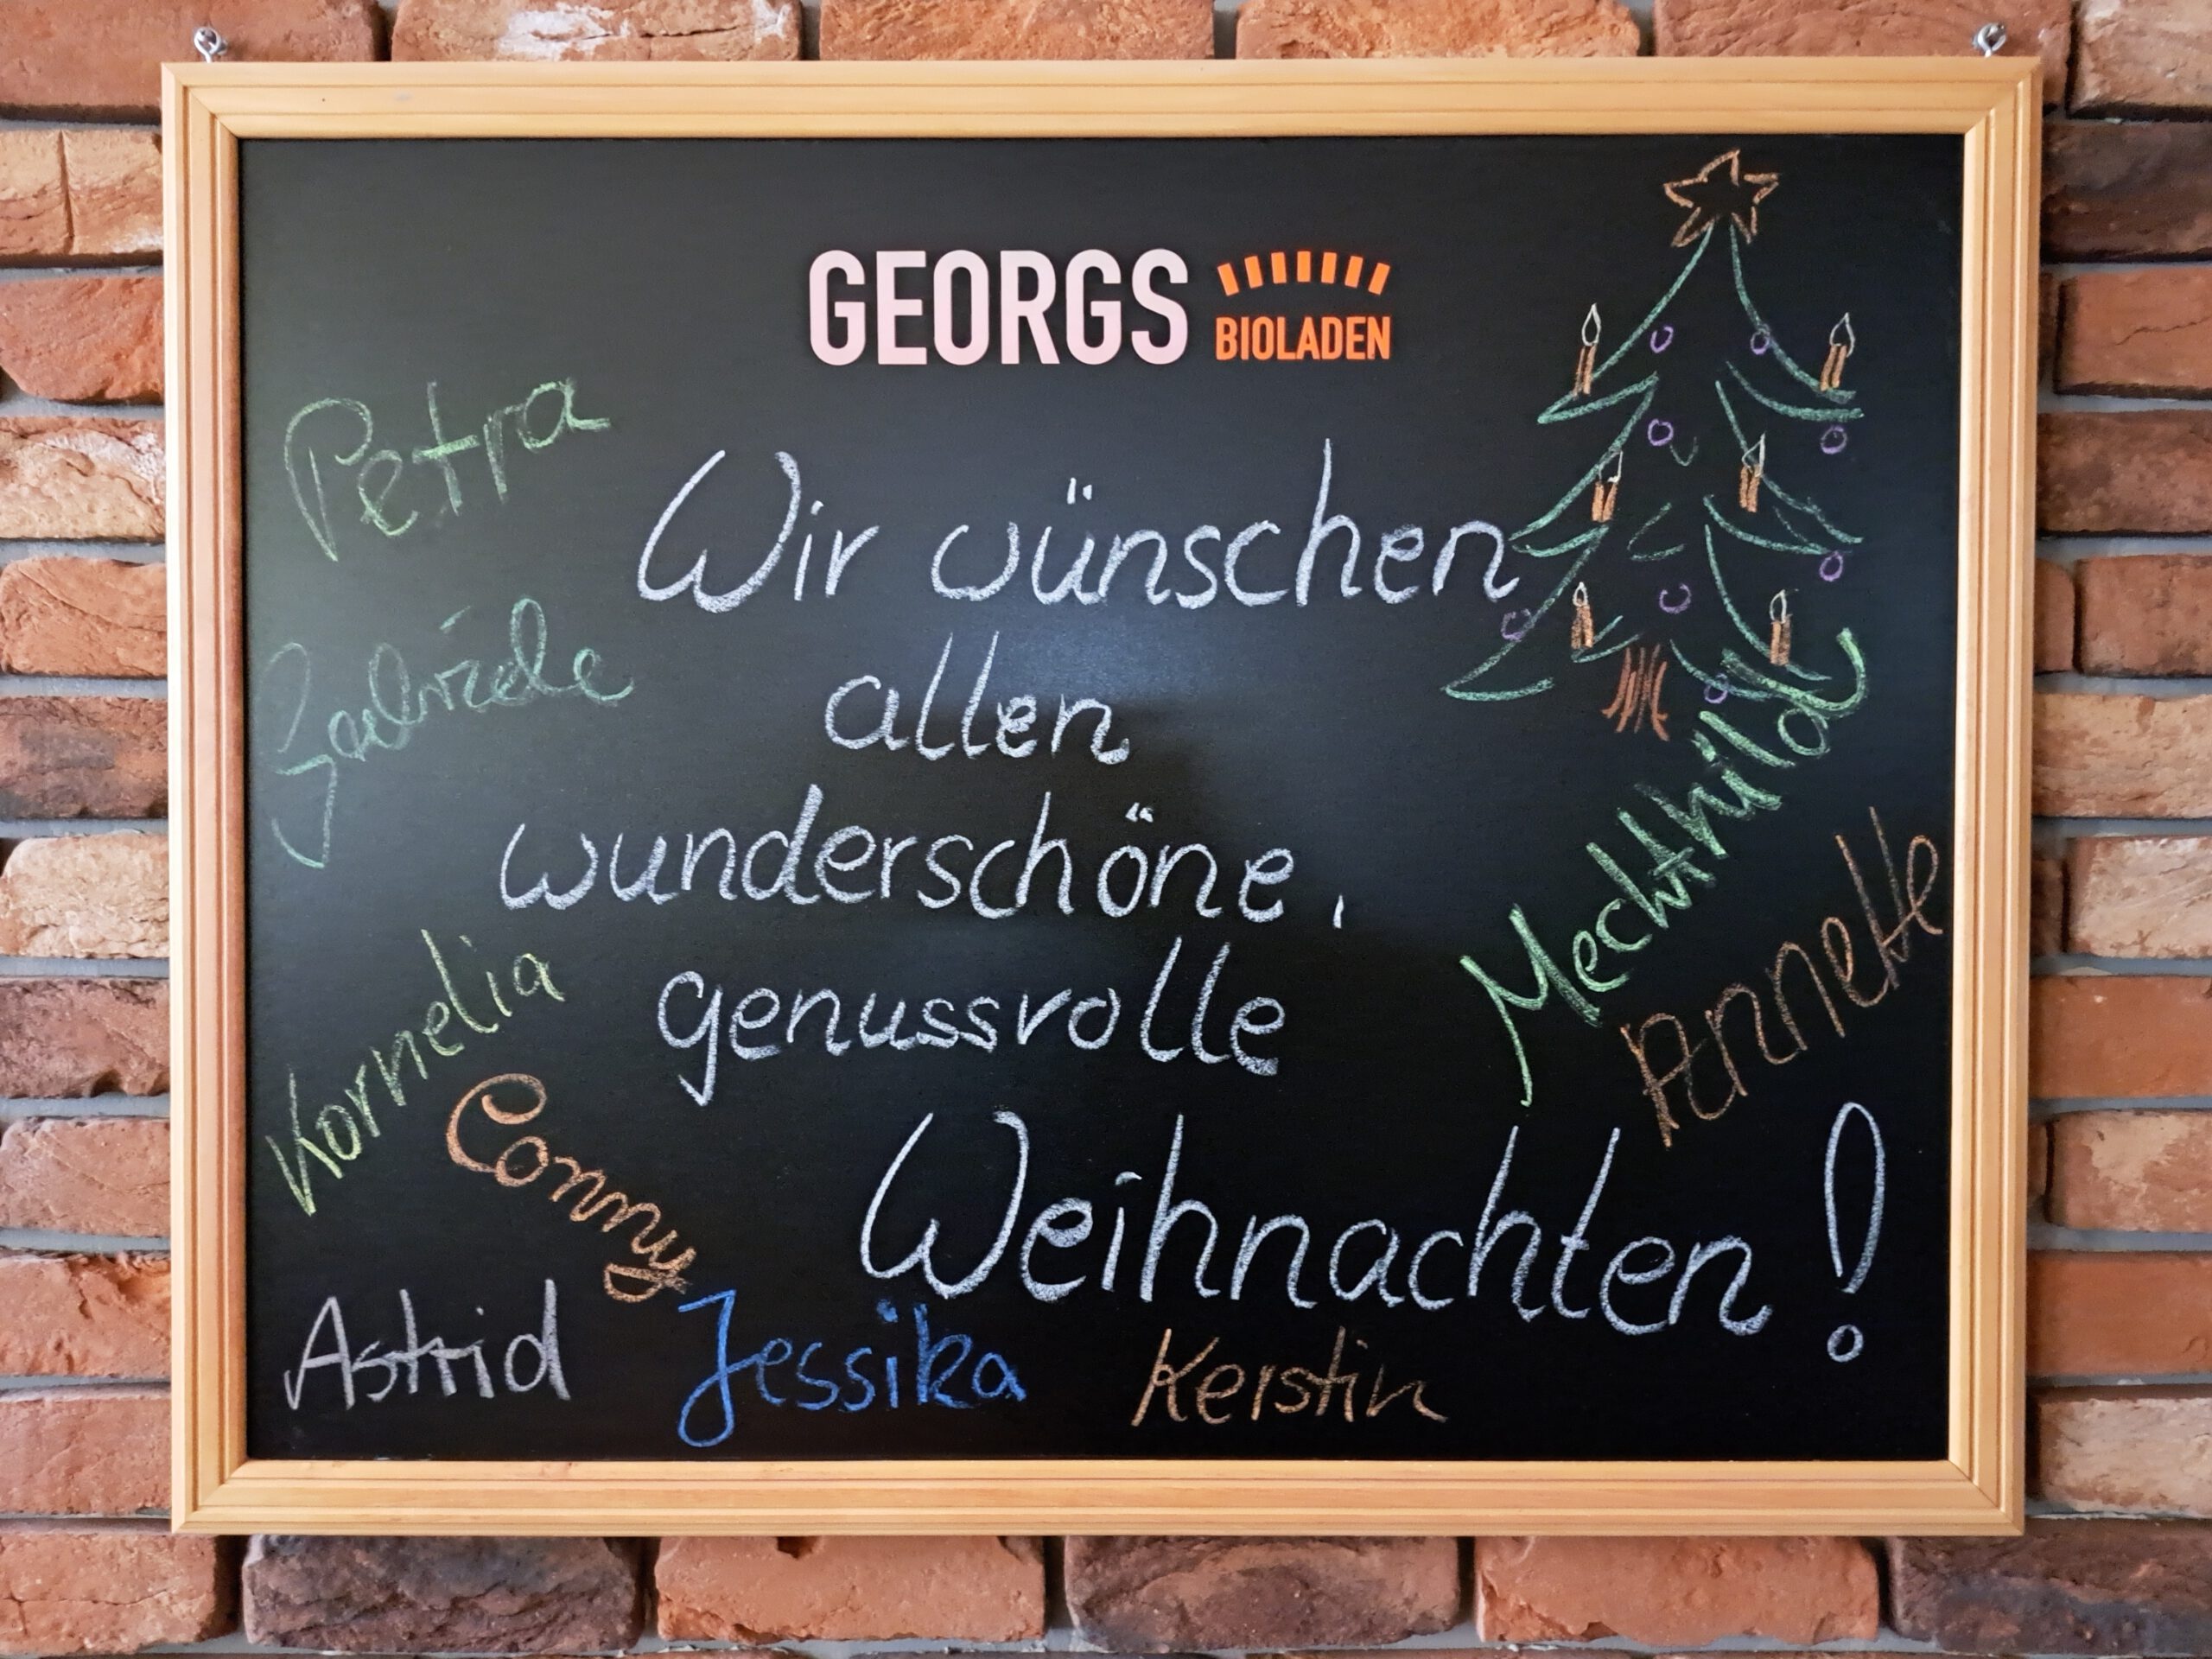 GEORGS BIOLADEN
Petra
Wir wünschen
Gabriele
allen
wunderschöne,
genussvolle
Weihnachten!
Mechthild
Annette
Kornelia
Conny
Astrid
Jessika
Kerstin